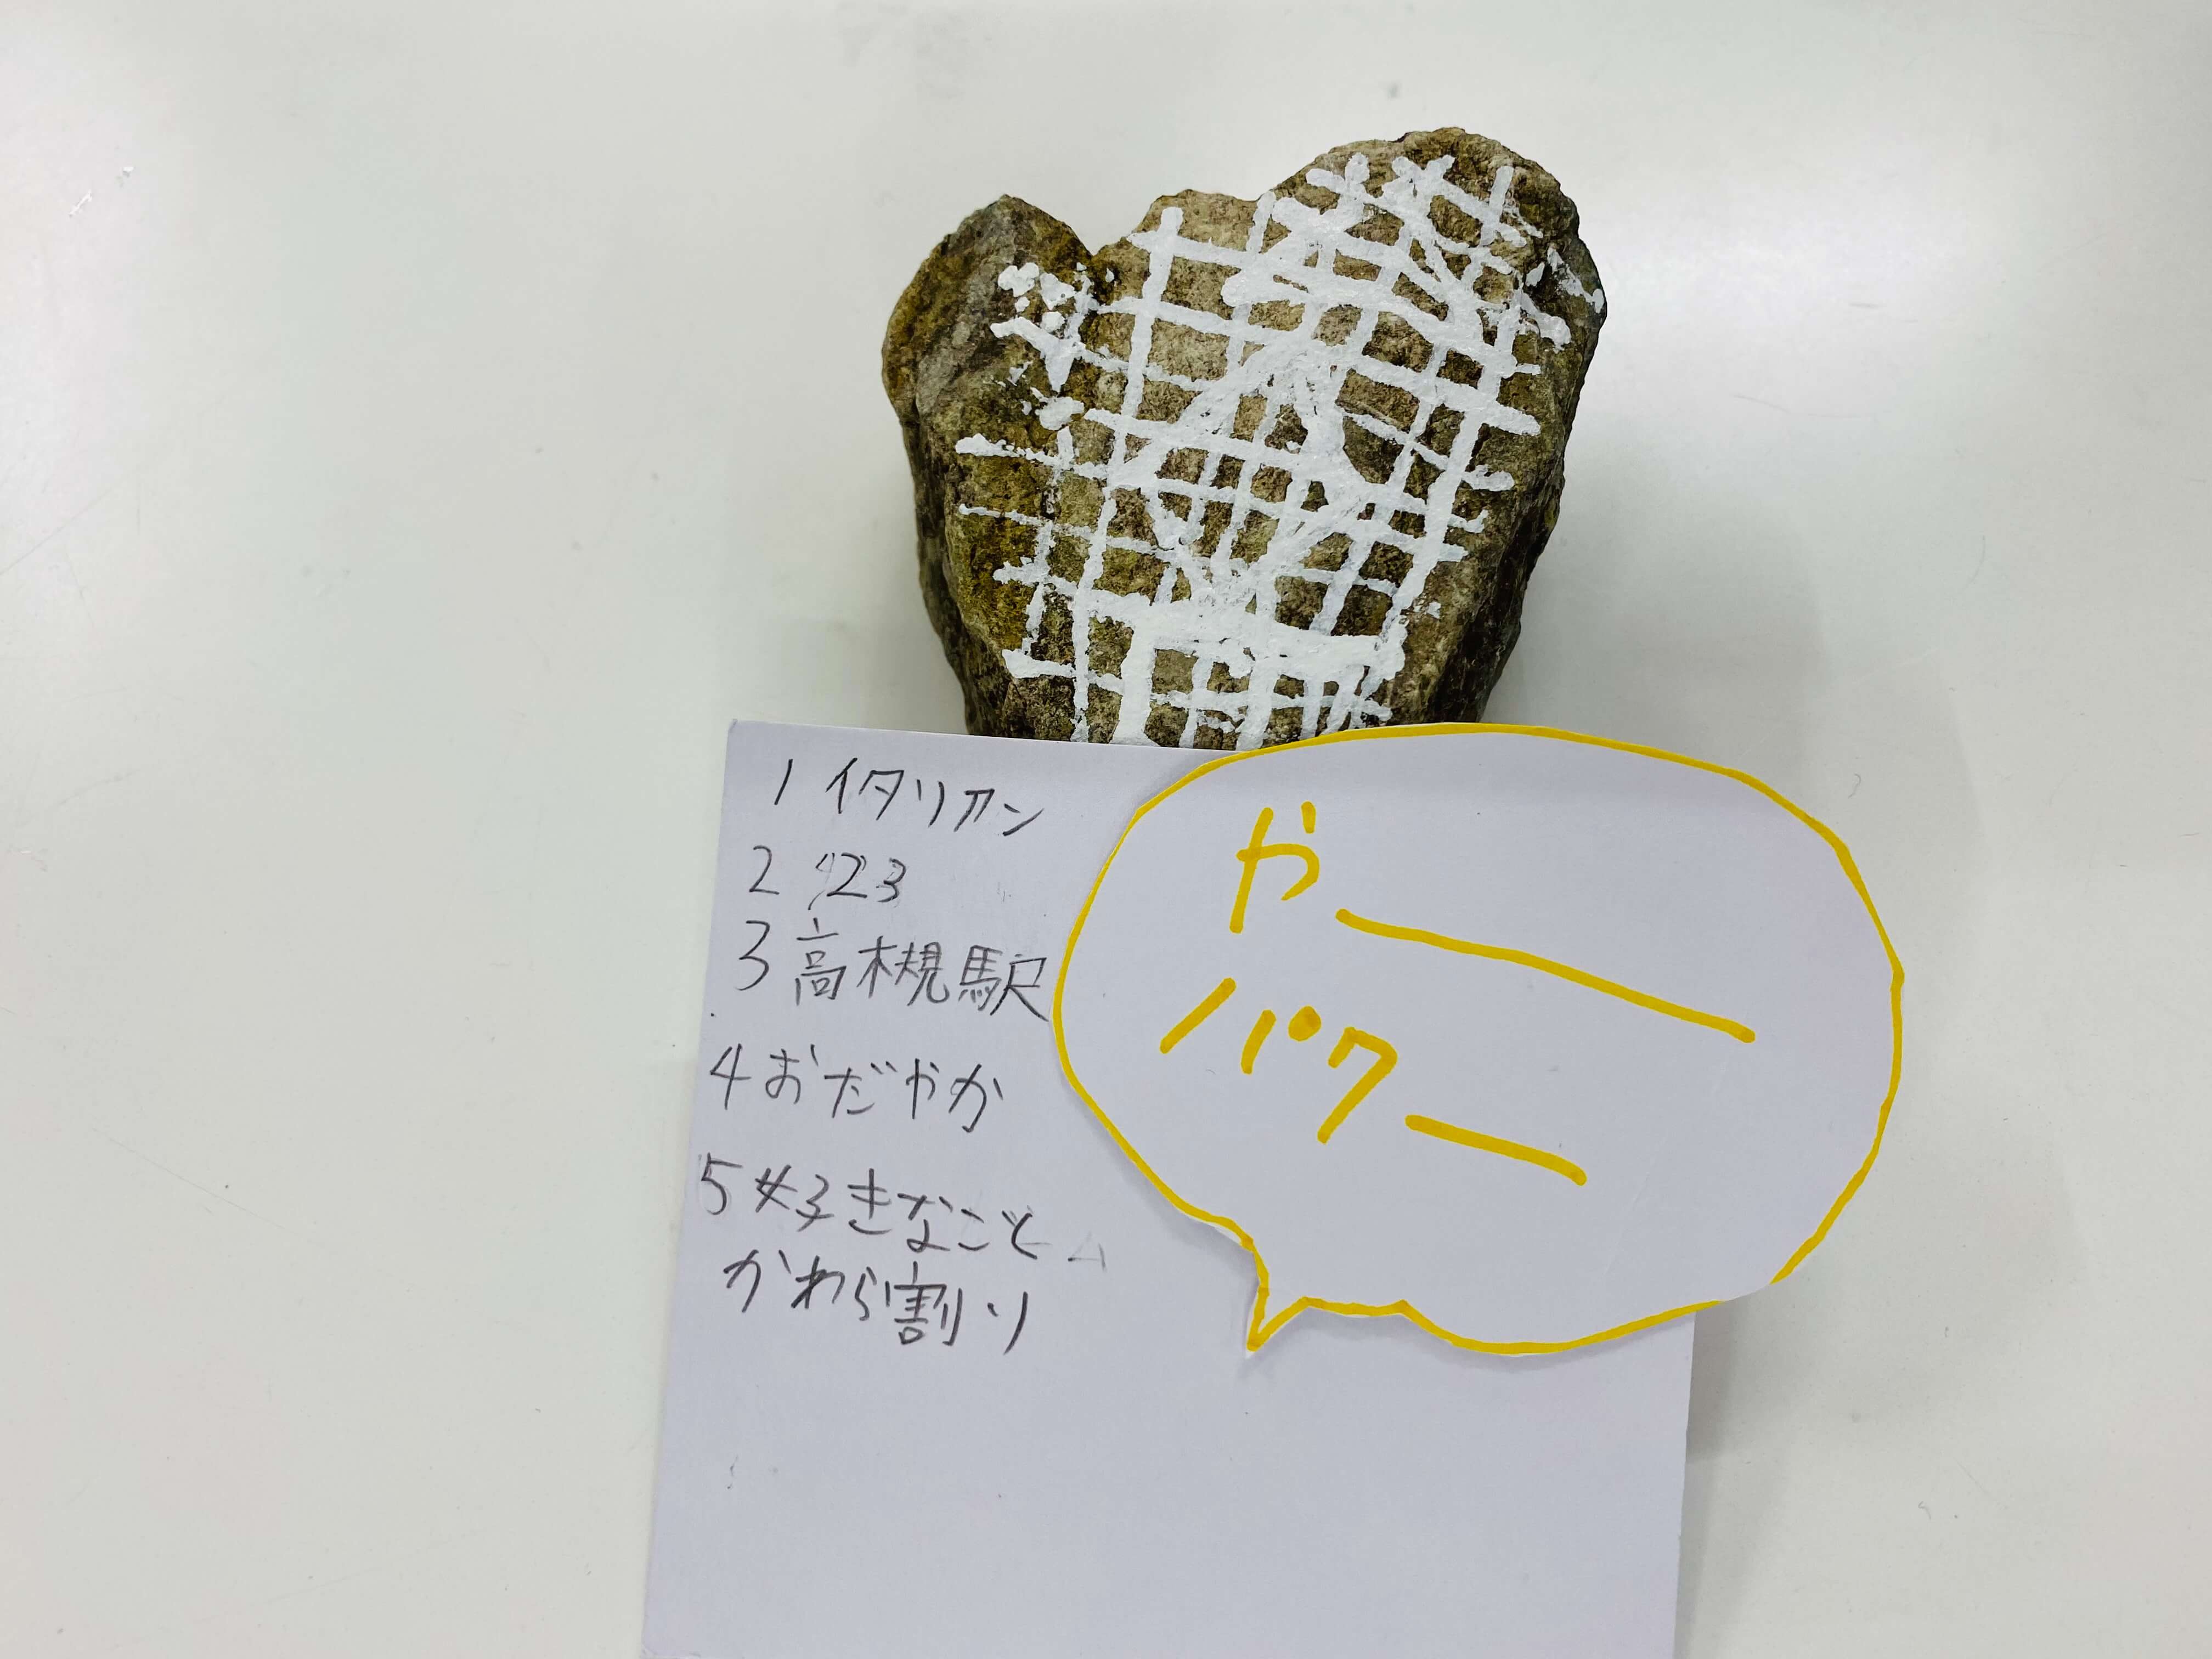 1 イタリアン
2 23
3 高槻駅
4 おだやか
5 好きなこと
かわら割り
や――
パワー